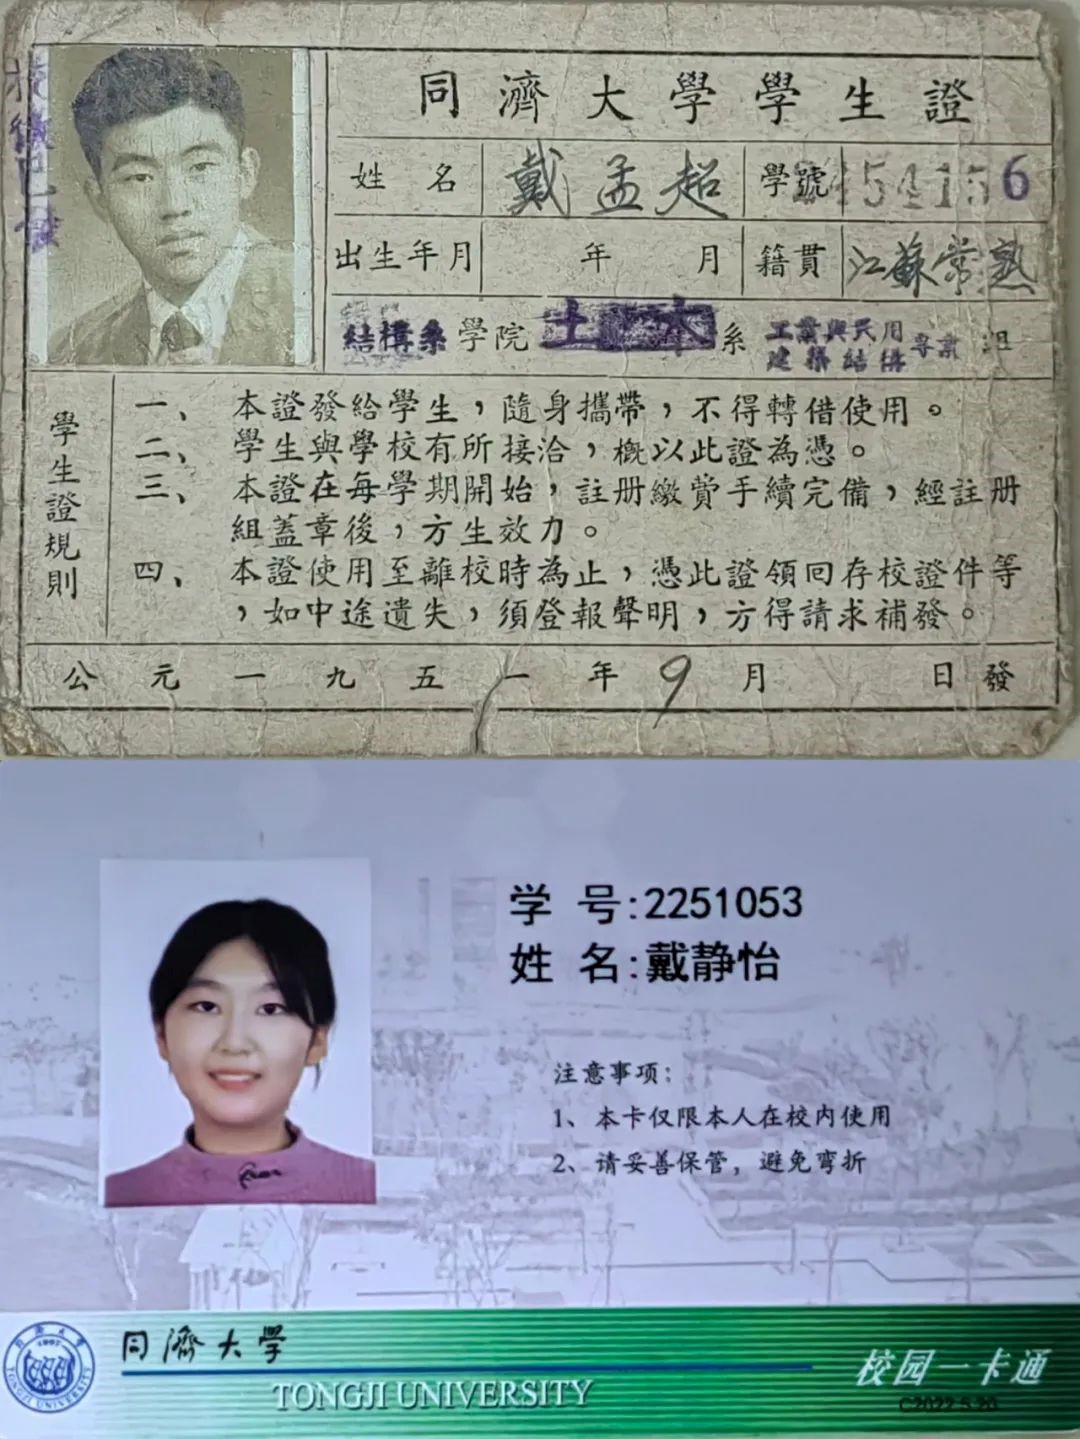 同濟大學學生證
姓名 戴孟超 學號 5415 6
出生年月 年 月 籍貫 江蘇常熟
結構系 學院 土木 系 工業與民用建築結構專業 組
學生證規則
一、本證發給學生,隨身攜帶,不得轉借使用。
二、學生與學校有所接洽,概以此證為憑。
三、本證在每學期開始,註册繳費手續完備,經註册
組蓋章後,方生效力。
四、本證使用至離校時為止,憑此證領回存校證件等
,如中途遺失,須登報聲明,方得請求補發。
公元一九五一年9月 日發
学 号:2251053
姓 名:戴静怡
注意事项:
1、本卡仅限本人在校内使用
2、请妥善保管,避免弯折
同濟大學
TONGJI UNIVERSITY
校园一卡通
TONGJI UNIVERSITY